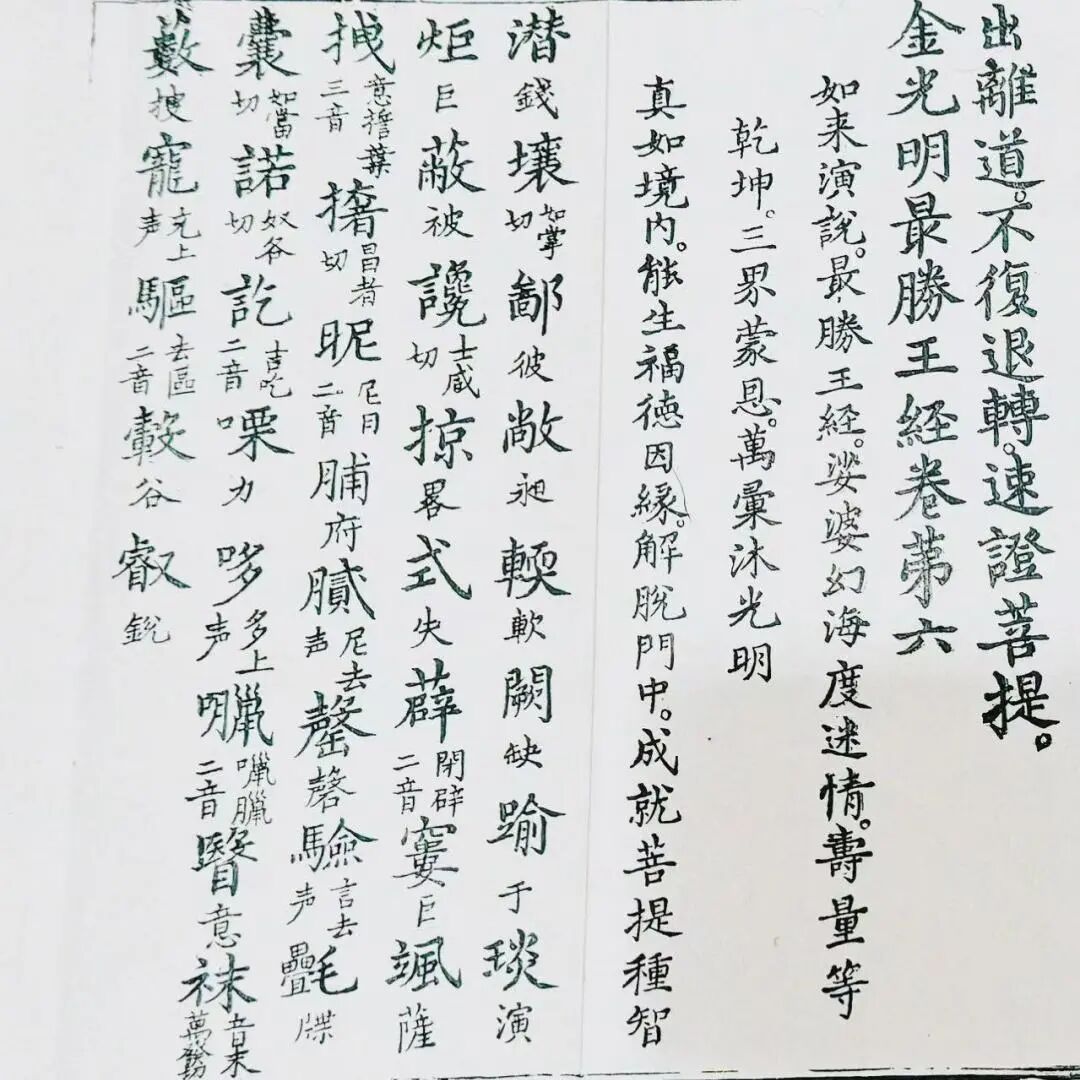 出離道。不復退轉。速證菩提。
金光明最勝王経卷第六
如来演說。最勝王経。娑婆幻海度迷情。壽量等
乾坤。三界蒙恩。萬彙沐光明
真如境内。能生福德因緣。解脫門中。成就菩提種智
潜錢壤如掌切鄙彼敞昶輭軟闕缺踰于琰演
炬巨蔽被讒士咸切掠畧式失薜閉辟二音窶巨颯薩
拽意擔葉三音撦昌者切昵尼日二音脯府膩尼去声罄磬驗言去声氎牒
囊如當切諾奴谷切訖吉吃二音㗚力哆多上声臘囉臘二音瞖意袜音末萬發
藪搜寵充上声驅去區二音轂谷叡銳